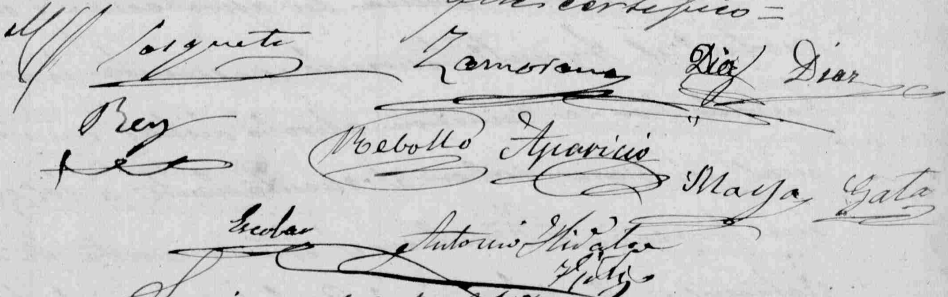 que certifico =
Zamorano Diaz Diaz
Rey
Rebollo Aparicio
Maya Gata
Escobar Antonio Hidalgo